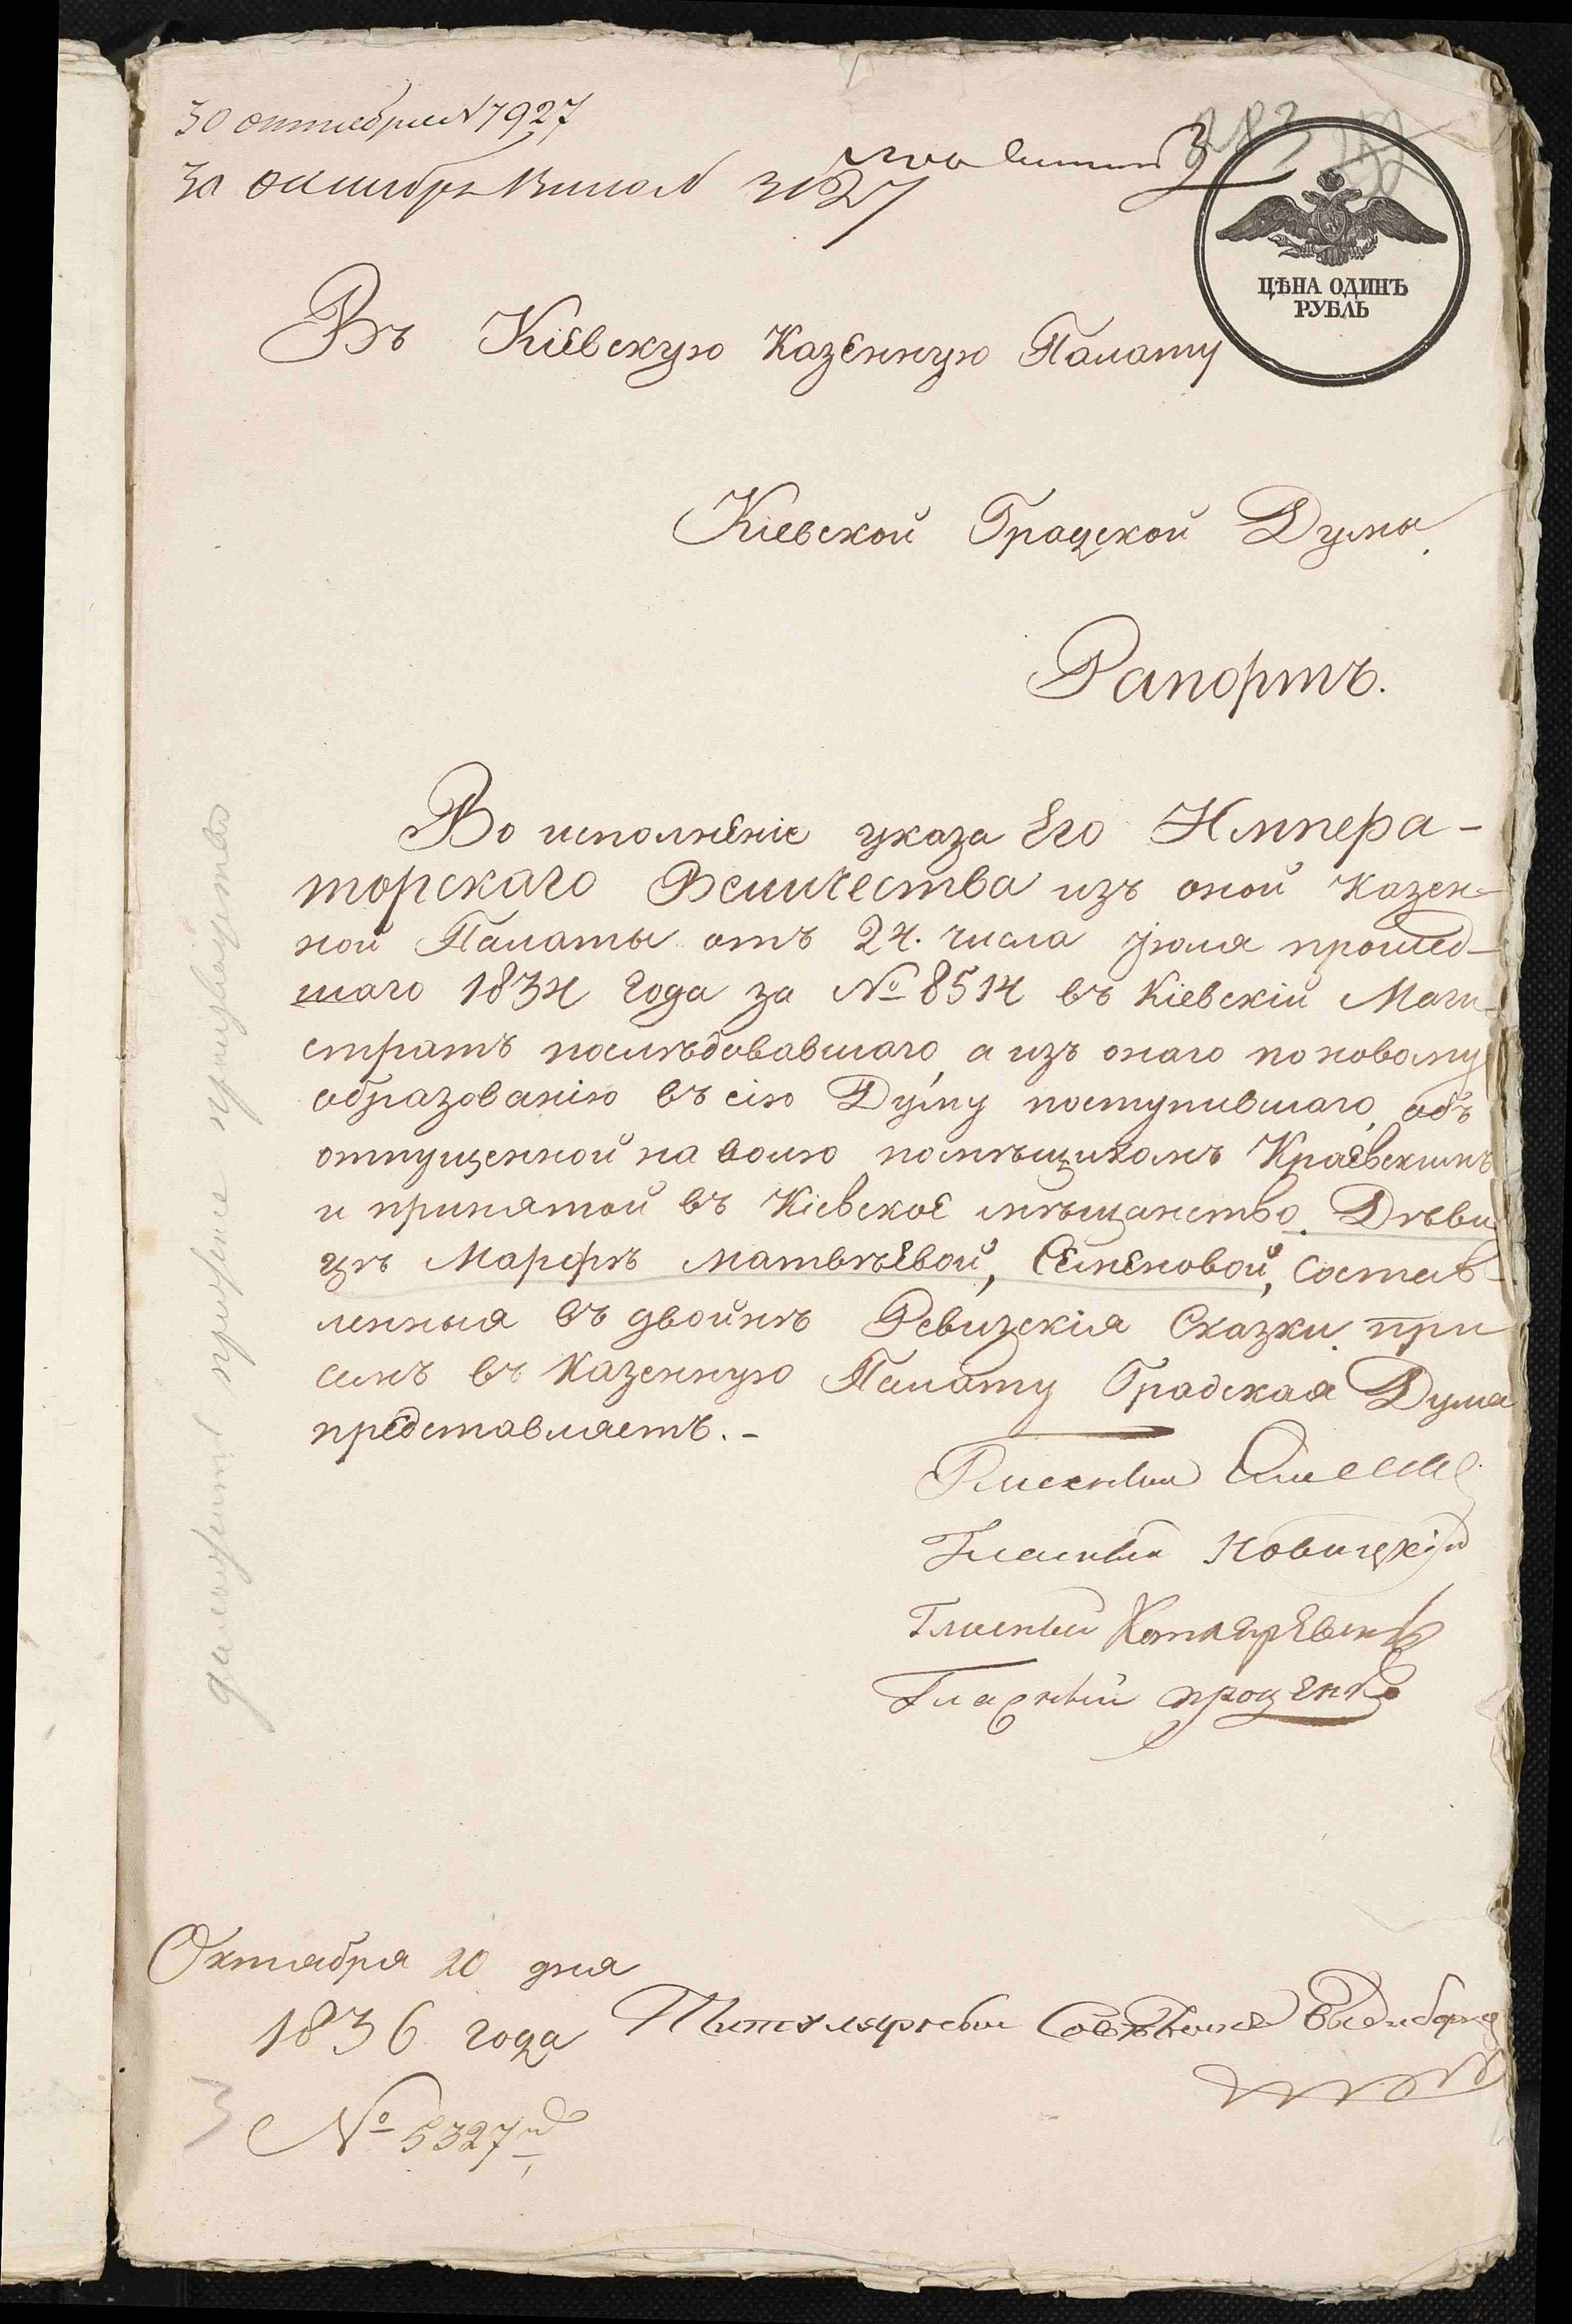 30 октября N 7927
283
ЦѢНА ОДИНЪ
РУБЛЬ
Въ Кіевскую Казенную Палату
Кіевской Градской Думы
Рапортъ.
Во исполненіе указа Его Импера-
торскаго Величества изъ оной Казен-
ной Палаты отъ 24. числа Іюля прошед-
шаго 1834 года за № 8514 въ Кіевскій Маги-
стратъ послѣдовавшаго, а изъ онаго по новому
образованію въ сію Думу поступившаго, объ
отпущенной на волю помѣщикомъ Краевскимъ
и принятой въ Кіевское мѣщанство Дѣви-
цѣ Марфѣ Матвѣевой, Семеновой, Состав-
ленныя въ двойнѣ Ревизскія Сказки при
семъ въ Казенную Палату Градская Дума
представляетъ.-
Гласный
Гласный Новицкій
Гласный Котляревскій
Гласный Проценко
Октября 20 дня
1836 года Титулярный Совѣтникъ
№ 5327